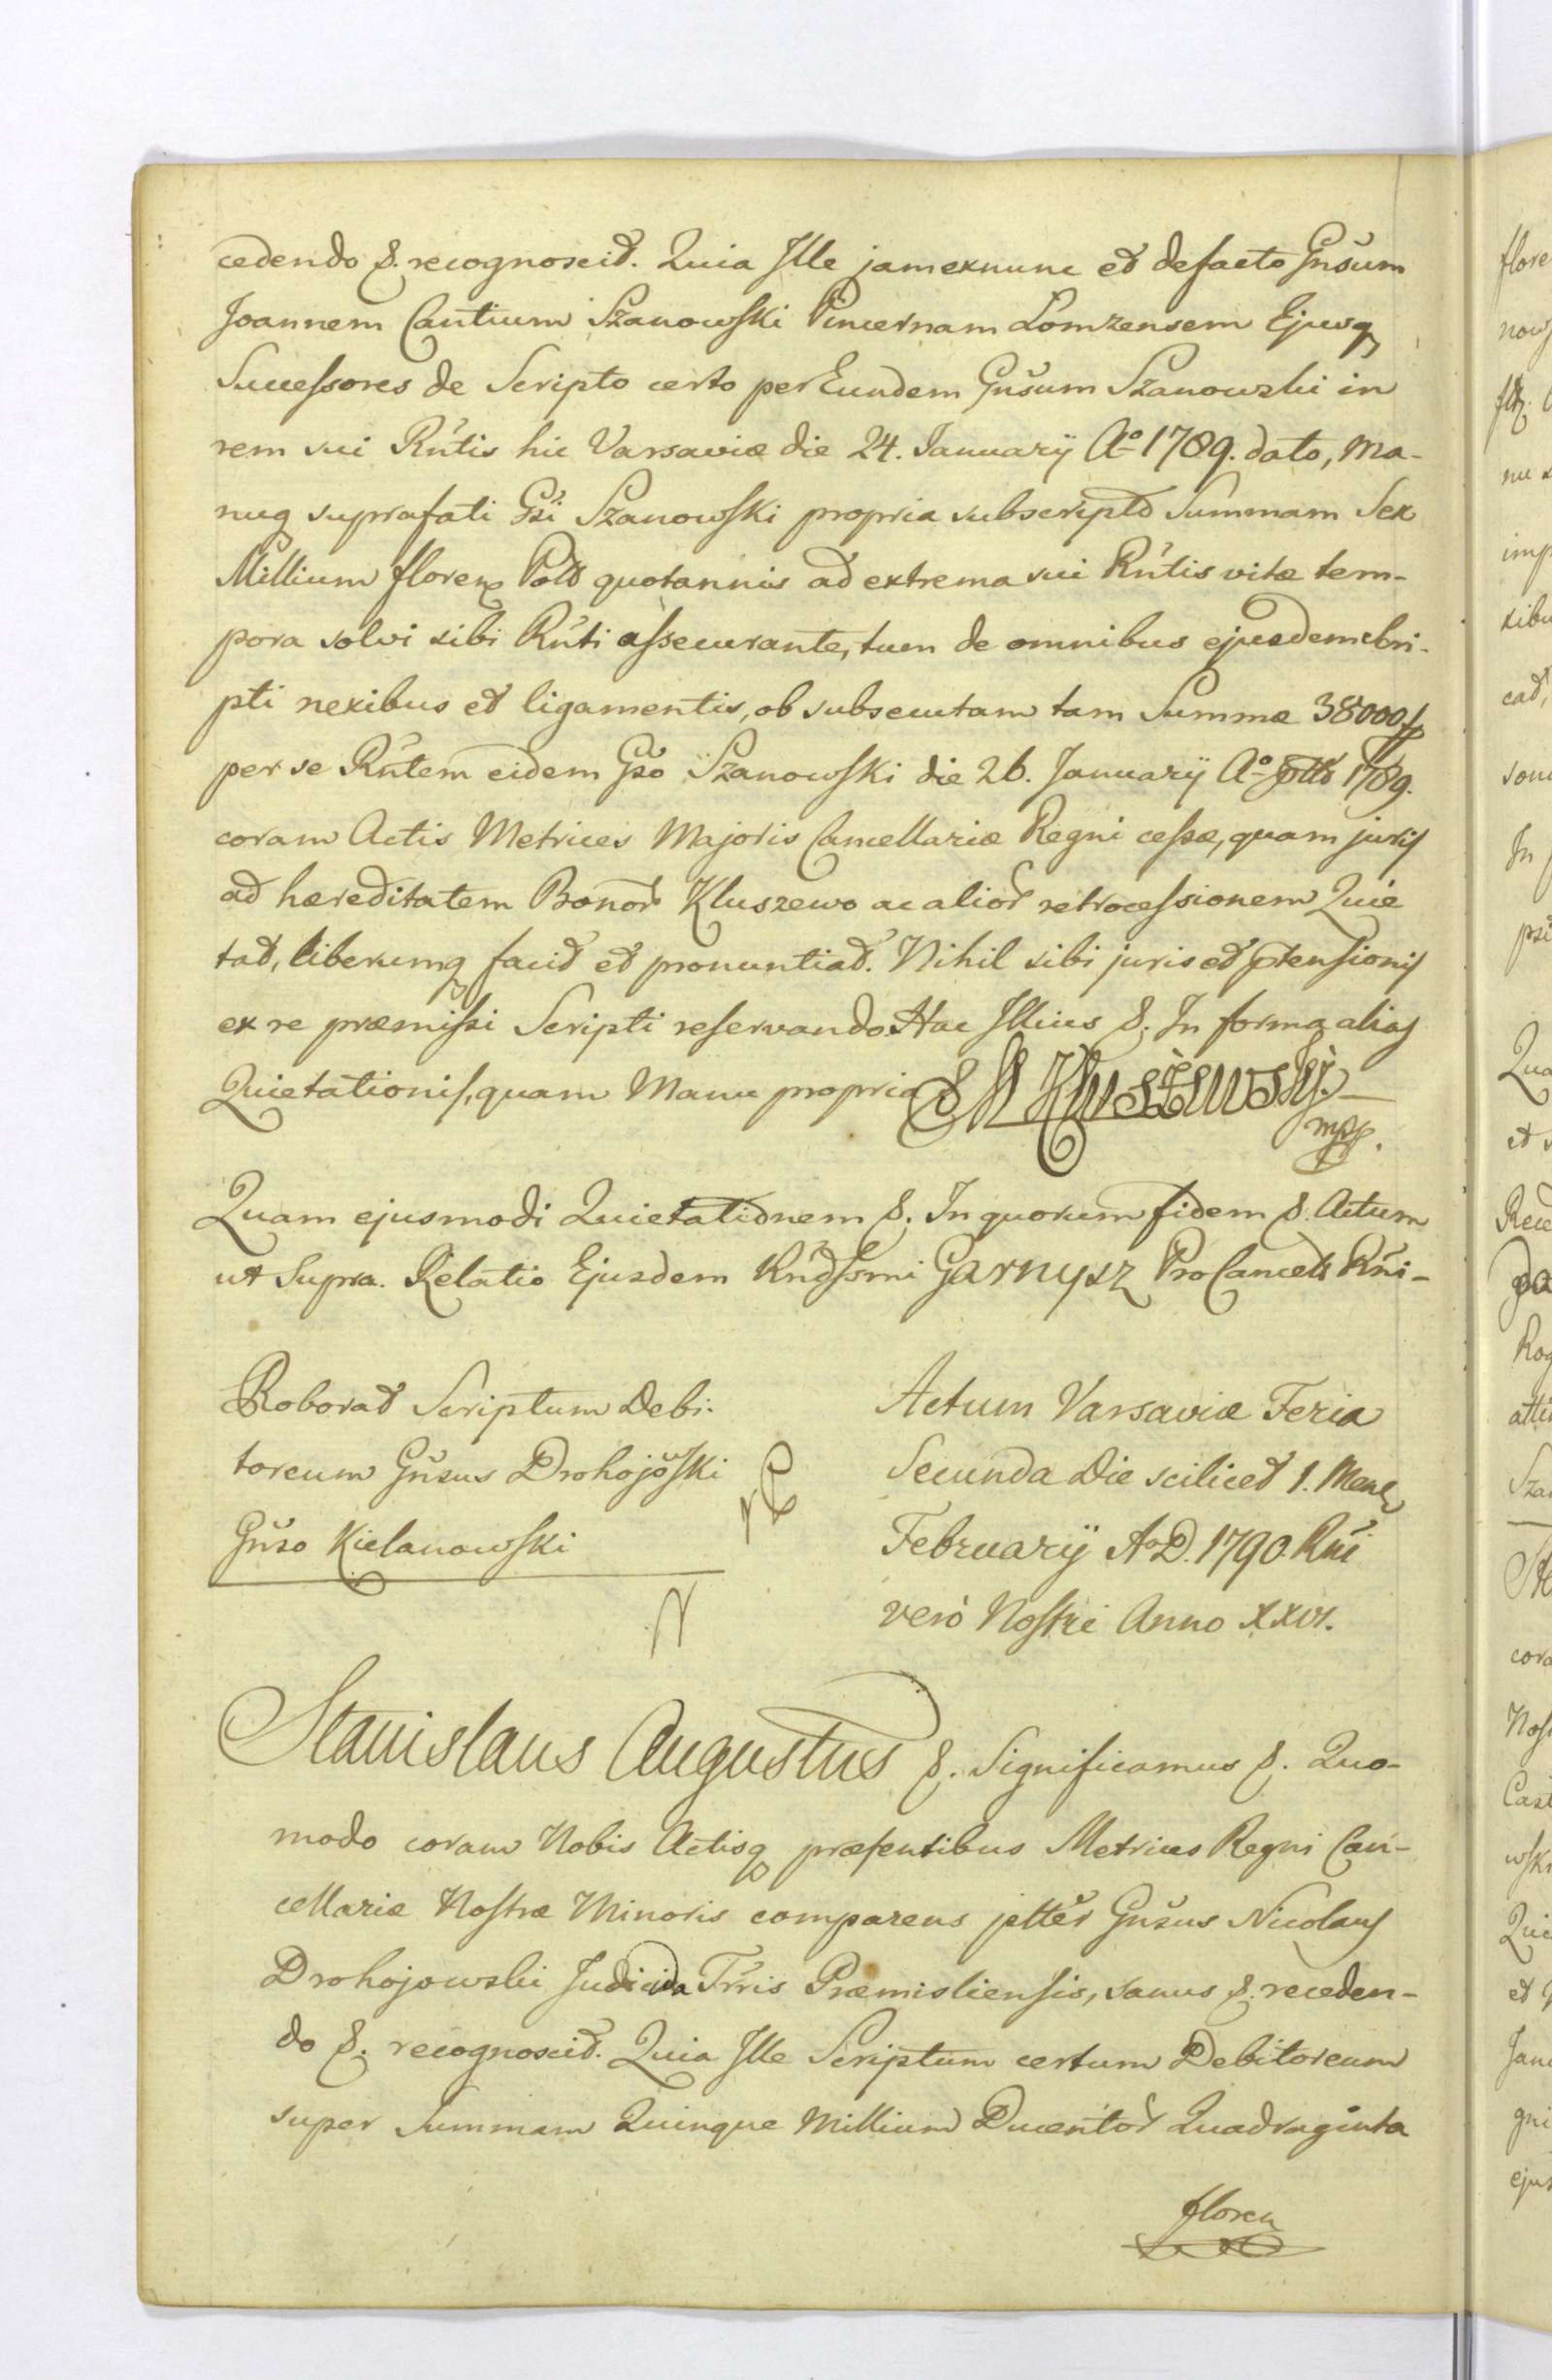 cedendo &. recognoscit. Quia Ille jamexnunc et defacto Gnsum
Joannem Cantium Szanowski Pincernam Lomzensem Ejusq
Successores de Scripto certo per Eundem Gnsum Szanowski in
rem sui Rntis hic Varsaviæ die 24. Januarÿ Aº 1789. dato, Ma-
nuq suprafati Gsi Szanowski propria subscripto Summam Sex
Millium floren Pol quotannis ad extrema sui Rntis vitæ tem-
pora solvi sibi Rnti assecurante, tum de omnibus ejusdem Scri-
pti nexibus et ligamentis, ob subsecutam tam Summæ 38000 f
per se Rntem eidem Gso Szanowski die 26. Januarÿ Aº 1789.
coram Actis Metrices Majoris Cancellariæ Regni cessæ, quam juris
ad hæreditatem Bonor Kluszewo ac alior retrocessionem Quie
tat, liberumq facit et pronuntiat. Nihil sibi juris et ptensionis
ex re præmissi Scripti reservando. Hac Illius &. In forma alias
Quietationis, quam Manu propria & Kluszewski
mpp.
Quam ejusmodi Quietationem &. In quorum fidem &. Actum
ut Supra. Relatio Ejusdem Rndssmi Garnysz ProCancell Rni-
Roborat Scriptum Debi-
toreum Gnsus Drohojowski
Gnso Kielanowski
Actum Varsaviæ Feria
Secunda Die scilicet 1. Mens
Februarÿ AoD. 1790. Rni
verò Nostri Anno XXVI.
Stanislaus Augustus &. Significamus &. Quo-
modo coram Nobis Actisq præsentibus Metrices Regni Can-
cellariæ Nostræ Minoris comparens pltter Gnsus Nicolaus
Drohojowski Judicida Trris Præmisliensis, sanus &. receden-
do &. recognoscit. Quia Ille Scriptum certum Debitoreum
super Summam Quinque Millium Ducentor Quadraginta
floren